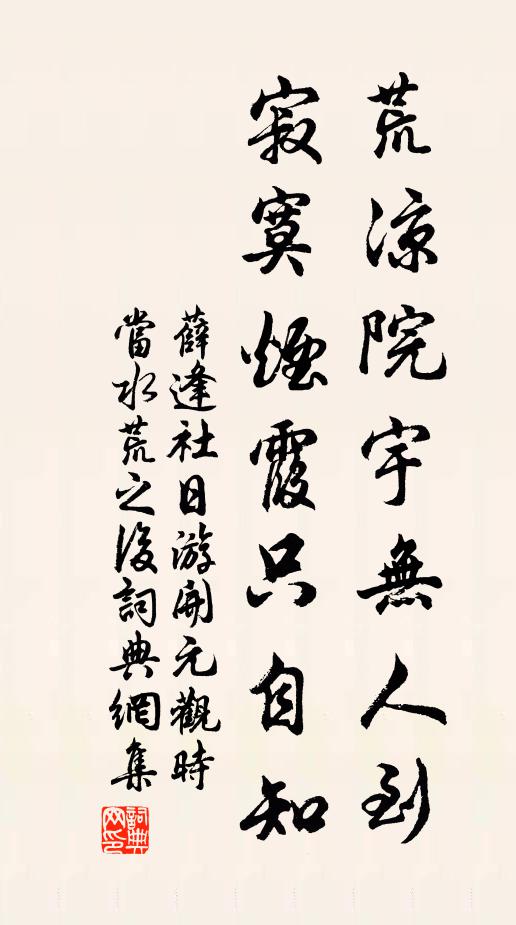 荒凉院宇無人到
寂寞煙霞只自知
薛逢社日游開元觀時
當水荒之後詞典網集
詞典网印